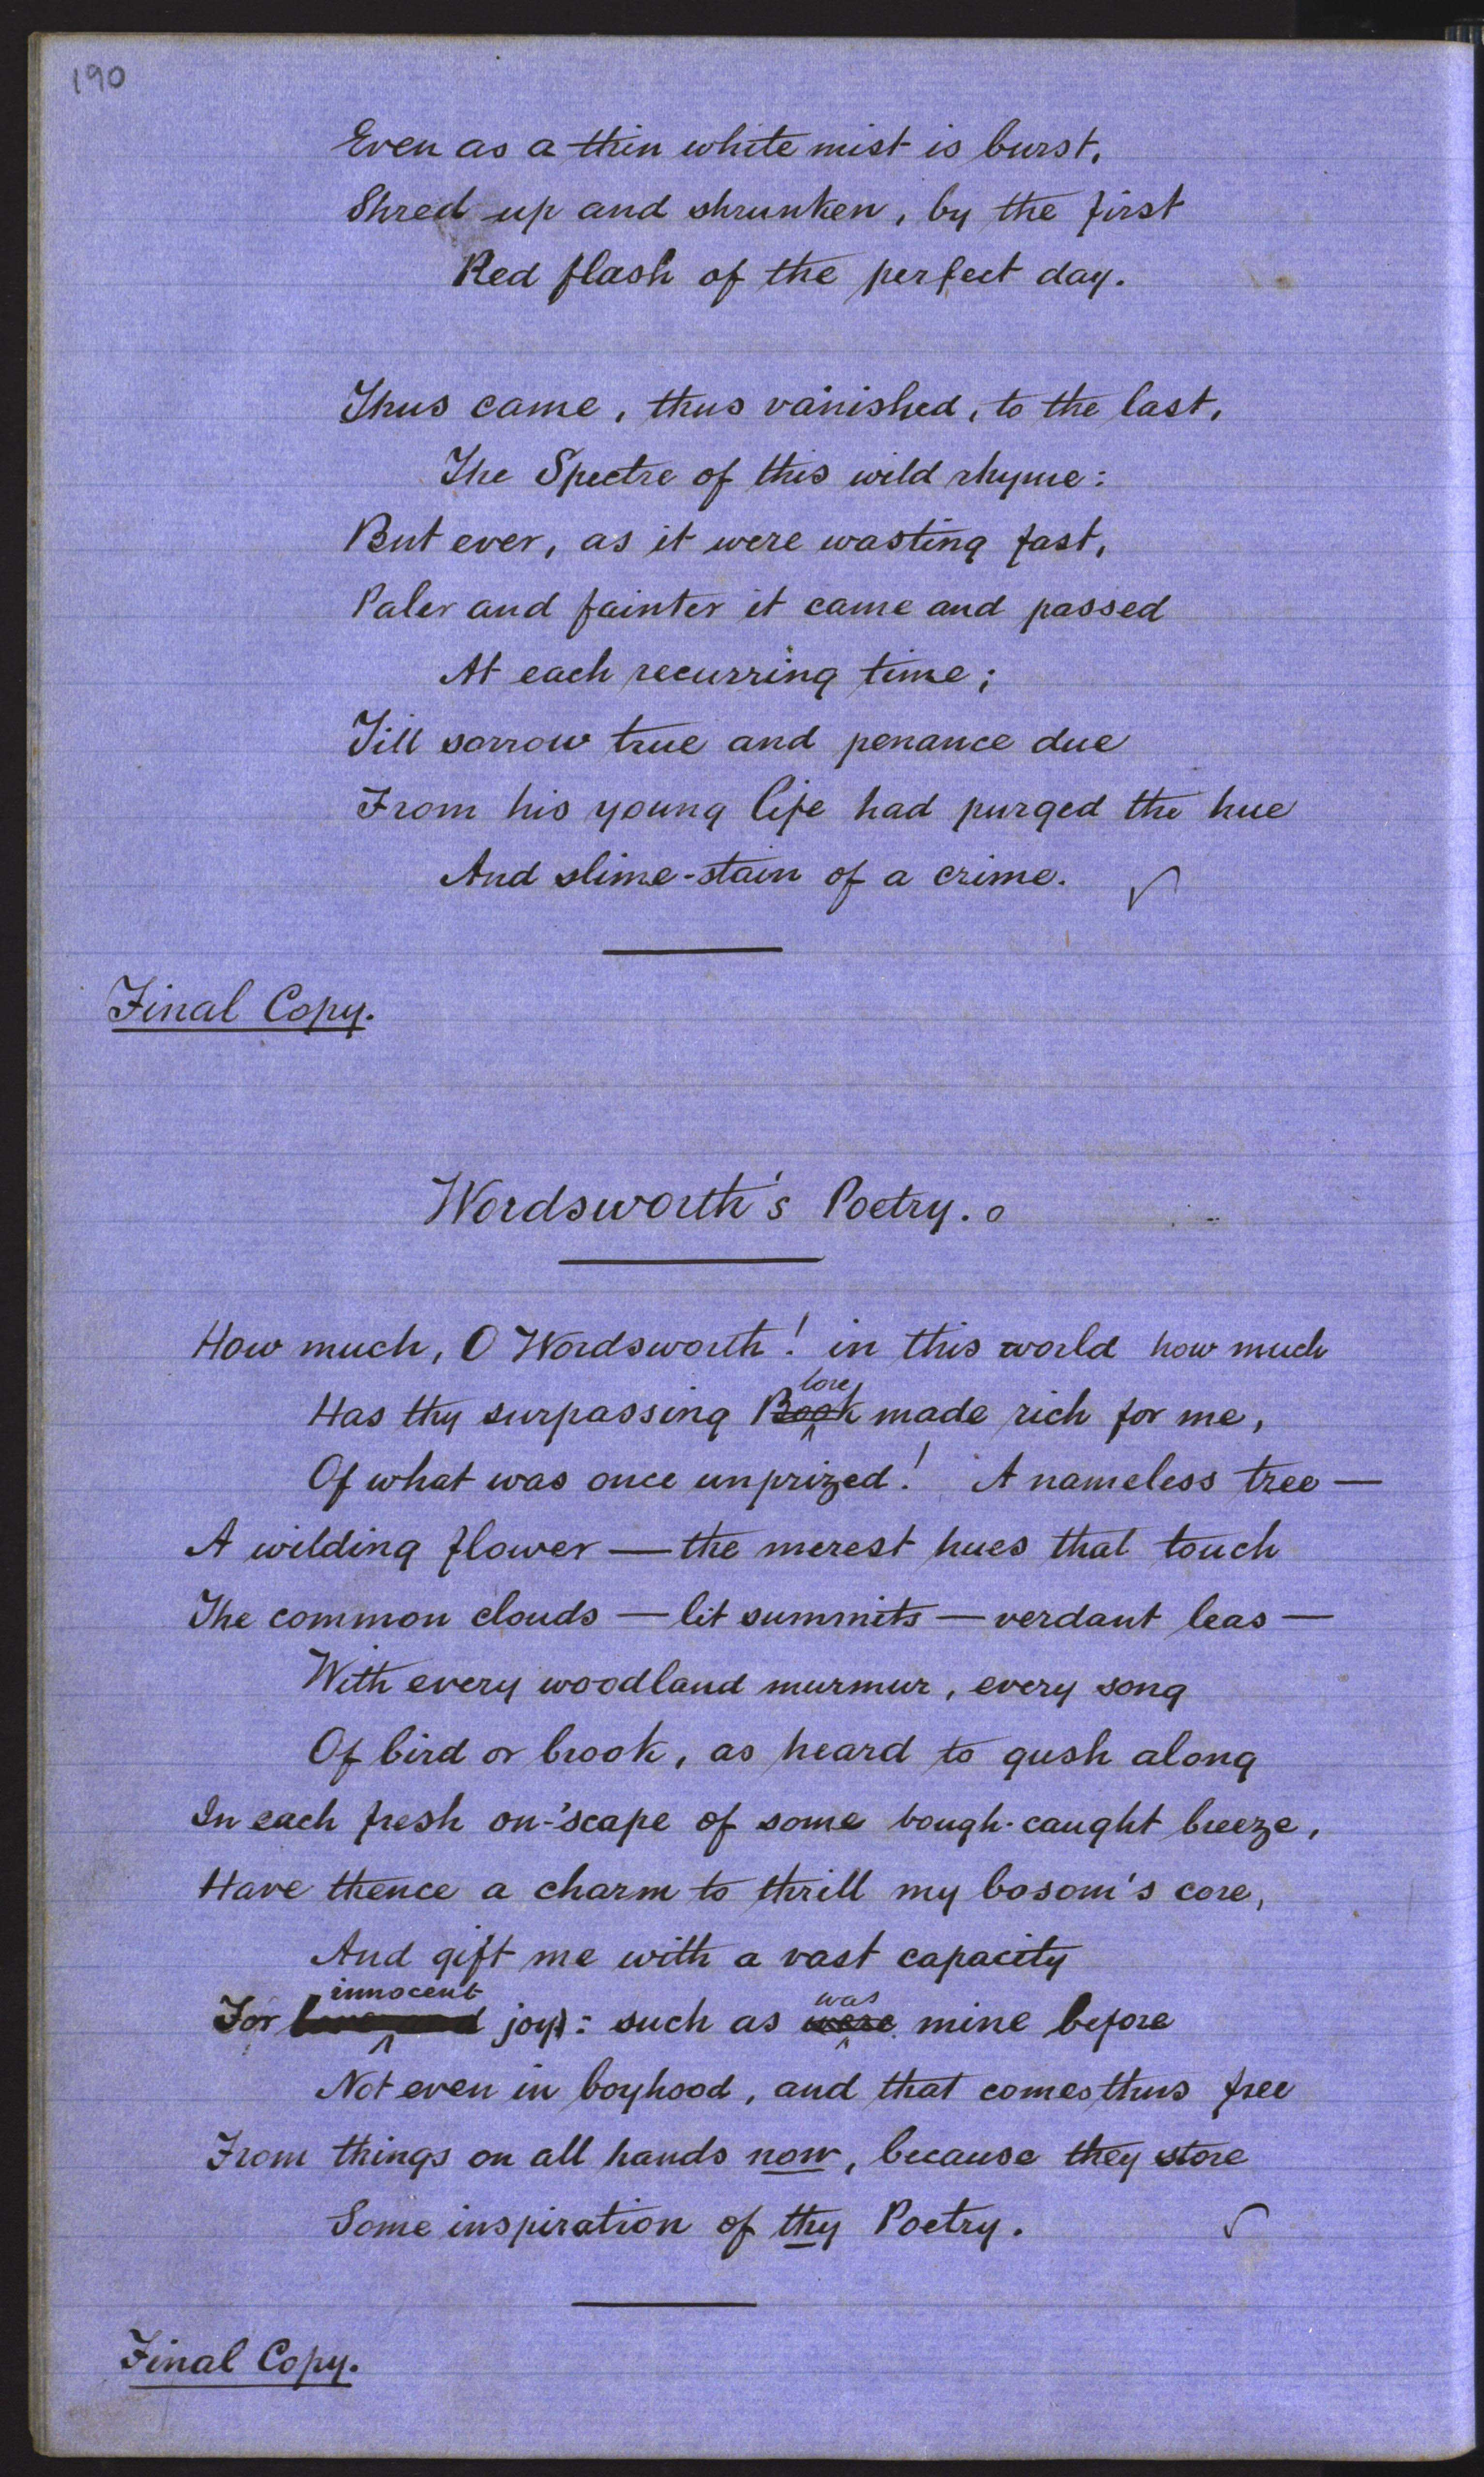 190
Even as a thin white mist is burst,
Shred up and shrunken, by the first
Red flash of the perfect day.
Thus came, thus vanished, to the last,
The Spectre of this wild rhyme:
But ever, as it were wasting fast,
Paler and fainter it came and passed
At each recurring time;
Till sorrow true and penance due
From his young life had purged the hue
And slime-stain of a crime.
Final Copy.
Wordsworth's Poetry.
How much, O Wordsworth! in this world how much
lore
Has thy surpassing Book made rich for me,
Of what was once unprized! A nameless tree —
A wilding flower — the merest hues that touch
The common clouds — lit summits — verdant leas —
With every woodland murmur, every song
Of bird or brook, as heard to gush along
In each fresh on-'scape of some bough-caught breeze,
Have thence a charm to thrill my bosom's core,
And gift me with a vast capacity
innocent was
For love and joy: such as were mine before
Not even in boyhood, and that comes thus free
From things on all hands now, because they store
Some inspiration of thy Poetry.
Final Copy.